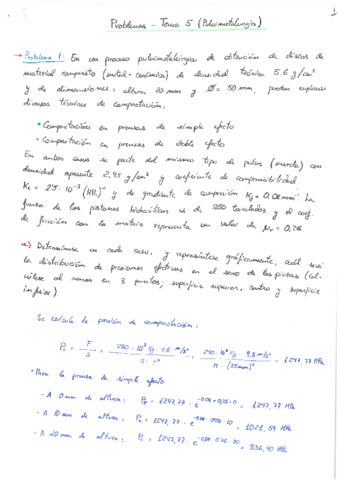 1
Problemas - Tema 5 (Pulvimetalurgia)
→ Problema 1: En un proceso pulvimetalúrgico de obtención de discos de
material compuesto (metal-cerámica) de densidad teórica 5.6 g/cm³
y de dimensiones: altura 20 mm y Ø = 50 mm, pueden emplearse
diversas técnicas de compactación:
• Compactación en prensas de simple efecto
• Compactación en prensas de doble efecto
En ambos casos se parte del mismo tipo de polvo (mezcla) con
densidad aparente 2,95 g/cm³ y coeficiente de compresibilidad
K₁ = 2'5·10⁻³ (MPa)⁻¹ y de gradiente de compresión Kg = 0,08 mm⁻¹. La
fuerza de los pistones hidráulicos es de 250 toneladas y el coef.
de fricción con la matriz representa un valor de μr = 0,25
a) Determínese en cada caso, y represéntese gráficamente, cuál será
la distribución de presiones efectivas en el seno de las piezas (cal-
cúlese al menos en 3 puntos; superficie superior, centro y superficie
inferior).
Se calcula la presión de compactación:
Pc = F/S = 250·10³ Kg · 9.8 m/s² / π·r² = 250·10³ Kg · 9,8 m/s² / π·(25mm)² = 1247,77 MPa
• Para la prensa de simple efecto
- A 0 mm de altura: P = 1247,77 · e^-0,08·0,25·0 = 1247,77 MPa
- A 10 mm de altura: P = 1247,77 · e^-0.08·0.25·10 = 1021,59 MPa
- A 20 mm de altura: P = 1247,77 · e^-0.08·0.25·20 = 836,40 MPa